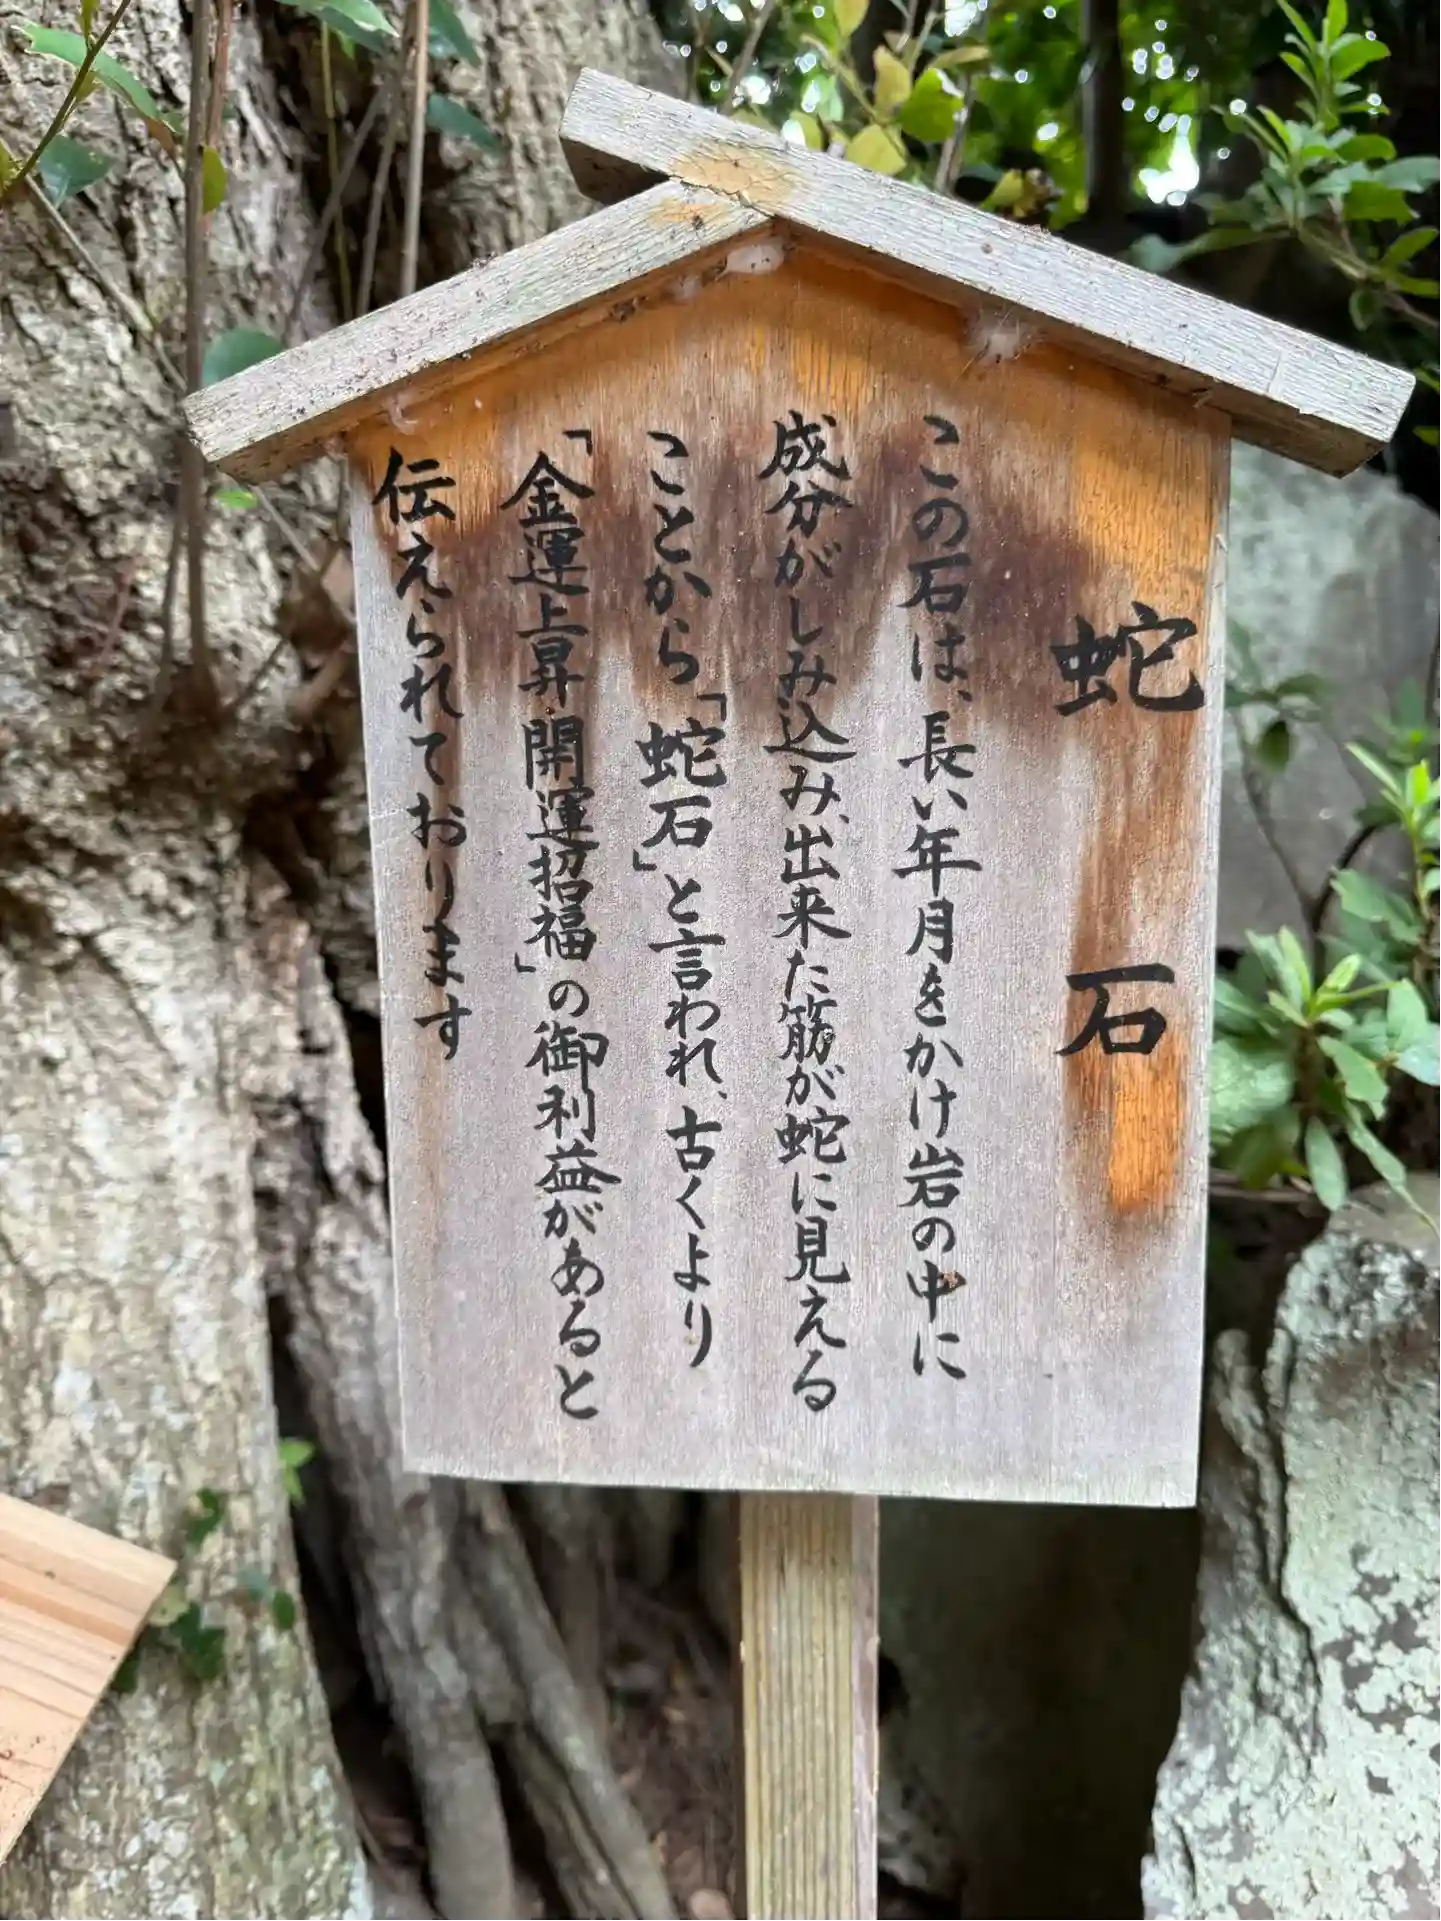 蛇石
この石は、長い年月をかけ岩の中に
成分がしみ込み、出来た筋が蛇に見える
ことから「蛇石」と言われ、古くより
「金運上昇開運招福」の御利益があると
伝えられております